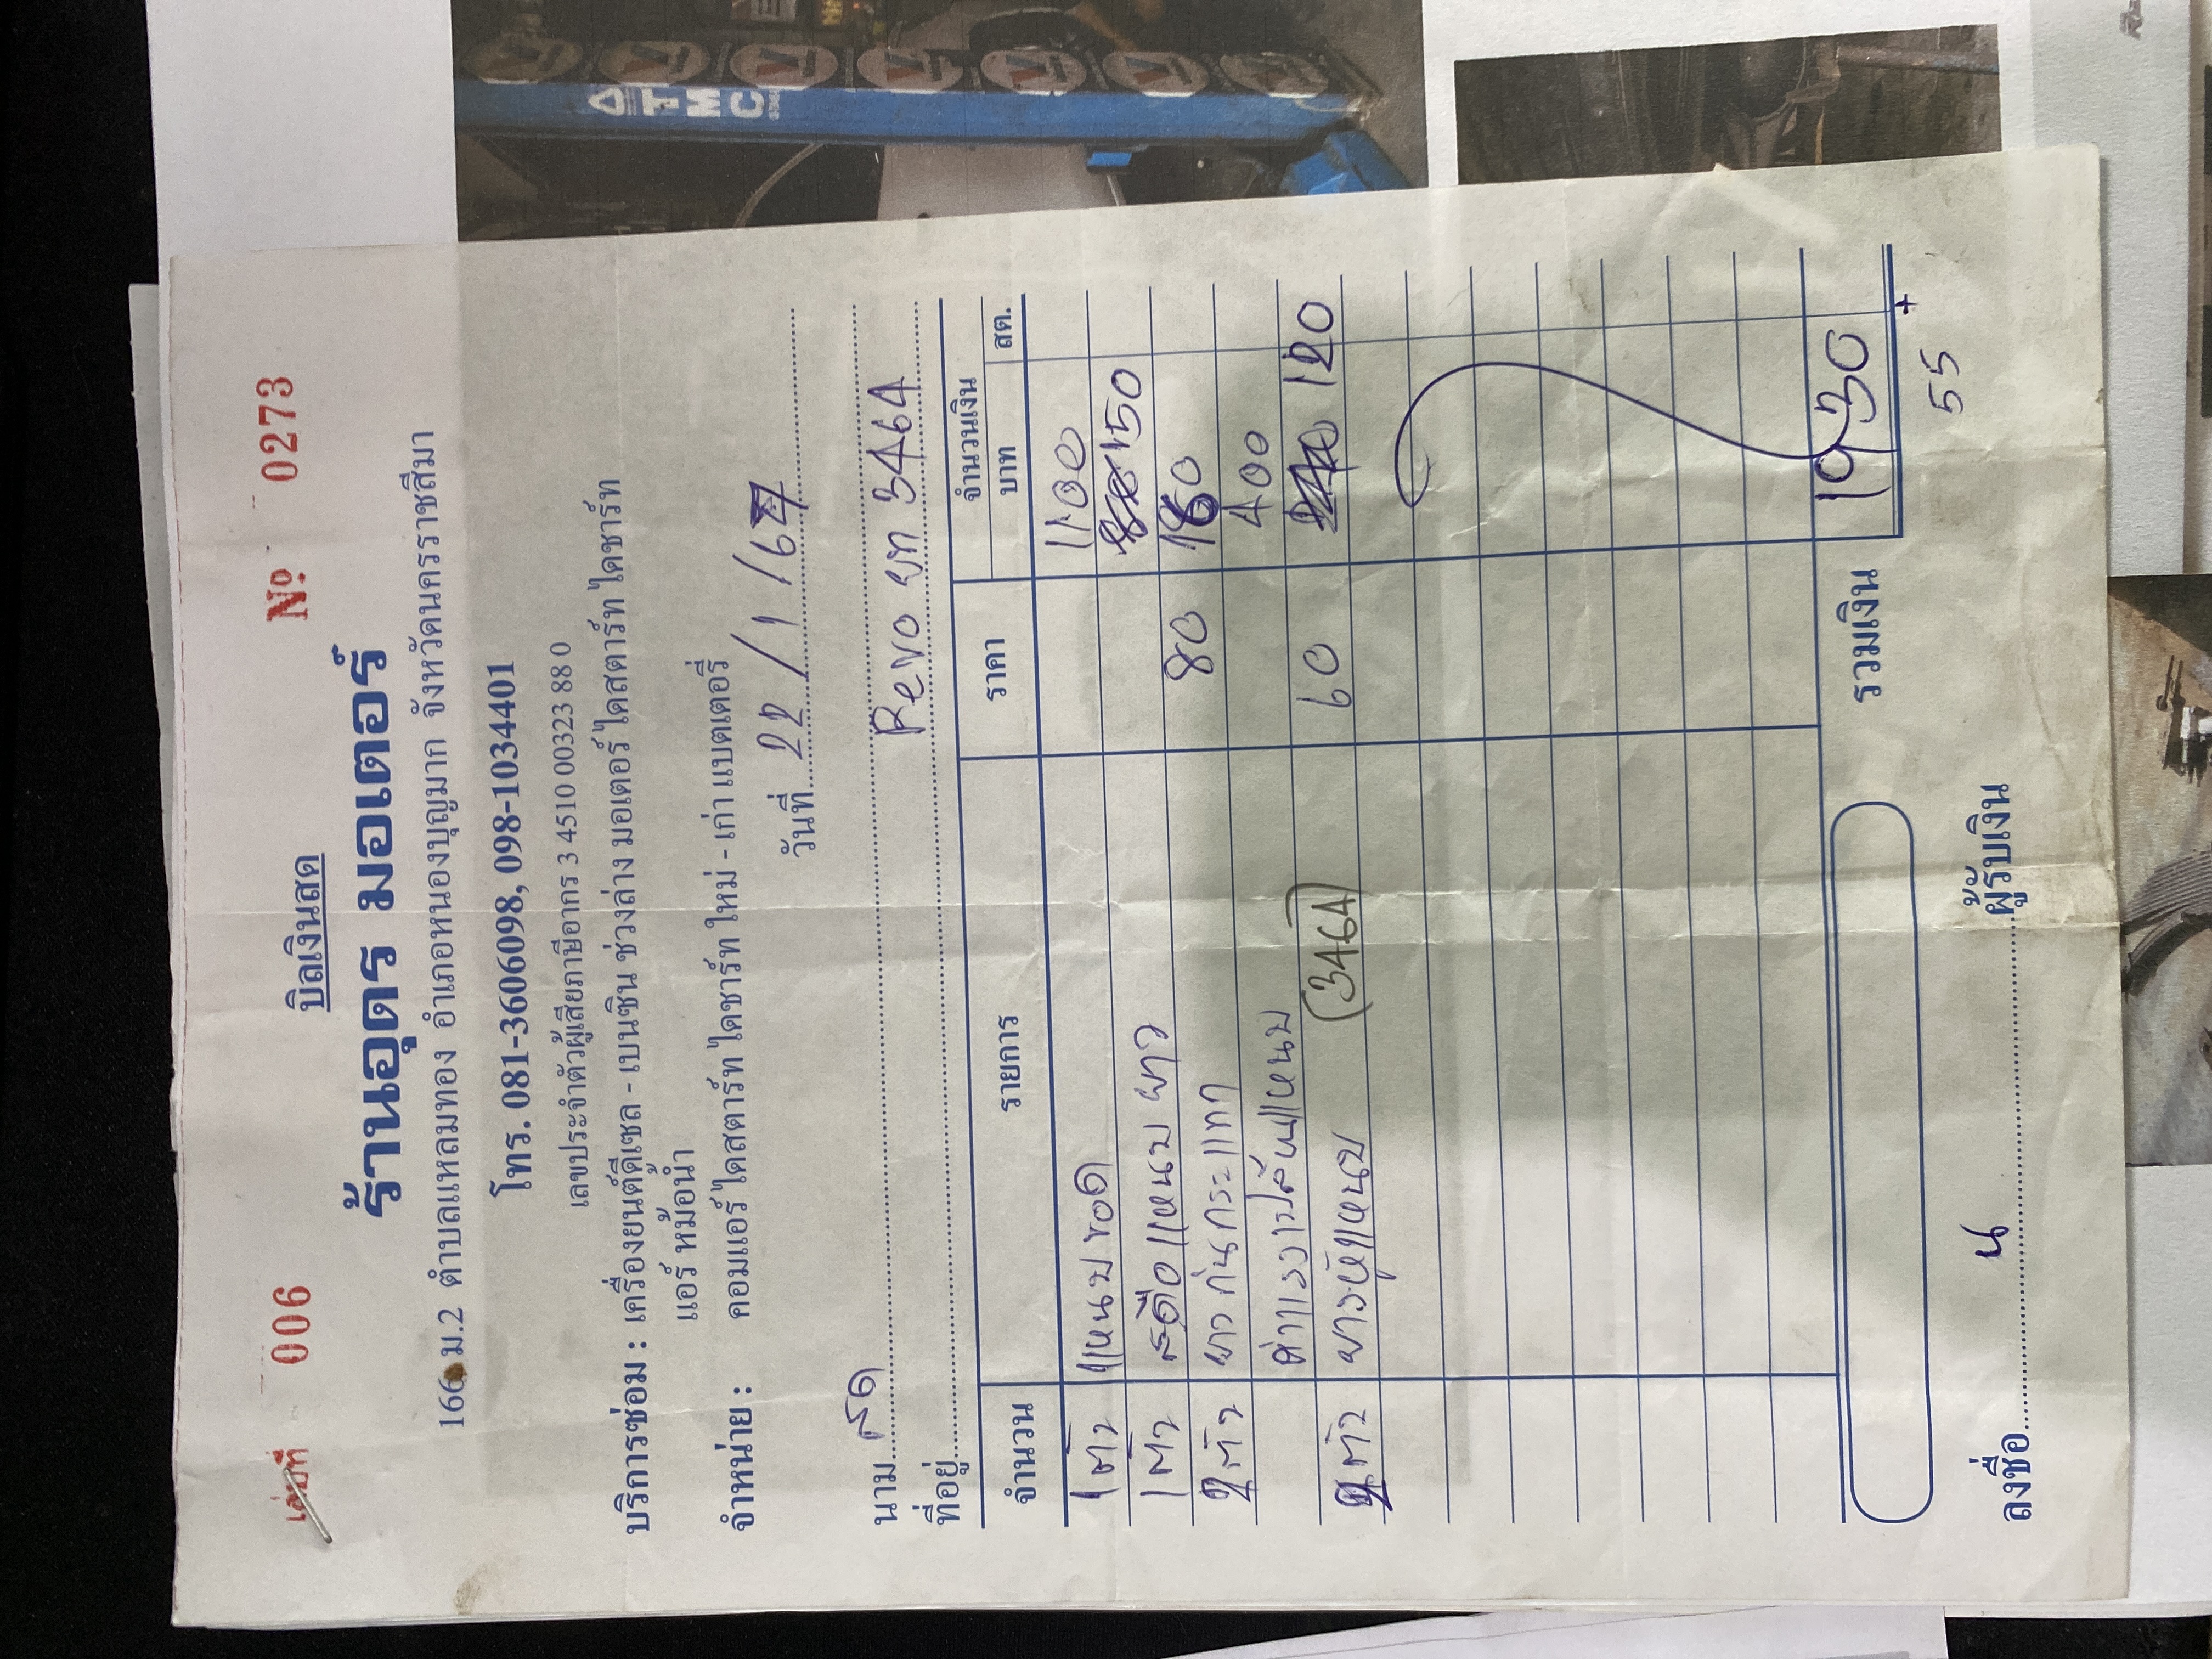 เล่มที่ 006 No. 0273
บิลเงินสด
ร้านอุดร มอเตอร์
166 ม.2 ตำบลแหลมทอง อำเภอหนองบุญมาก จังหวัดนครราชสีมา
โทร. 081-3606098, 098-1034401
เลขประจำตัวผู้เสียภาษีอากร 3 4510 00323 88 0
บริการซ่อม : เครื่องยนต์ดีเซล - เบนซิน ช่วงล่าง มอเตอร์ ไดสตาร์ท ไดชาร์ท
แอร์ หม้อน้ำ
จำหน่าย : คอมแอร์ ไดสตาร์ท ไดชาร์ท ใหม่ - เก่า แบตเตอรี่
วันที่ 22 / 1 / 67
นาม สด
ที่อยู่ Revo บท 3464
จำนวน รายการ ราคา จำนวนเงิน
บาท สต.
1 ตัว แหนบขอด 1100
1 ตัว สะดือแหนบ ยาว 150
2 ตัว ยาง ก้นกระแทก 80 160
ค่าแรงเปลี่ยนแหนบ 400
2 ตัว ยางหูแหนบ 60 120
(3464)
รวมเงิน 1930
55
ลงชื่อ น ผู้รับเงิน
TMC